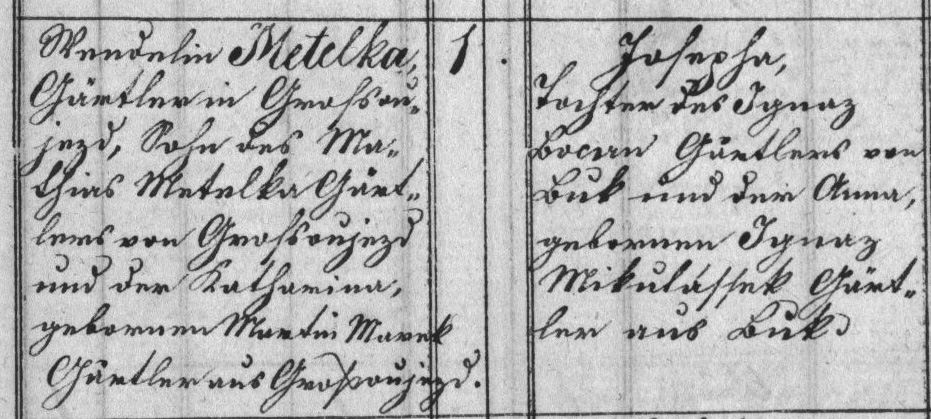 Wendelin Metelka,
Gärtler in Grossau-
jezd, Sohn des Ma-
thias Metelka Gärt-
lers von Grossoujezd
und der Katharina,
gebornen Martin Marek
Gärtler aus Großoujezd.
1.
Josepha,
Tochter des Ignaz
Bocan Gärtlers von
Buk und der Anna,
gebornen Ignaz
Mikulássek Gärt-
ler aus Buk